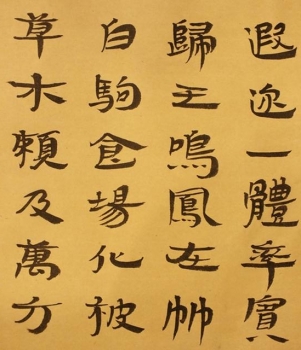 遐迩一體率賓
歸王鳴鳳在竹
白駒食場化被
草木賴及萬方